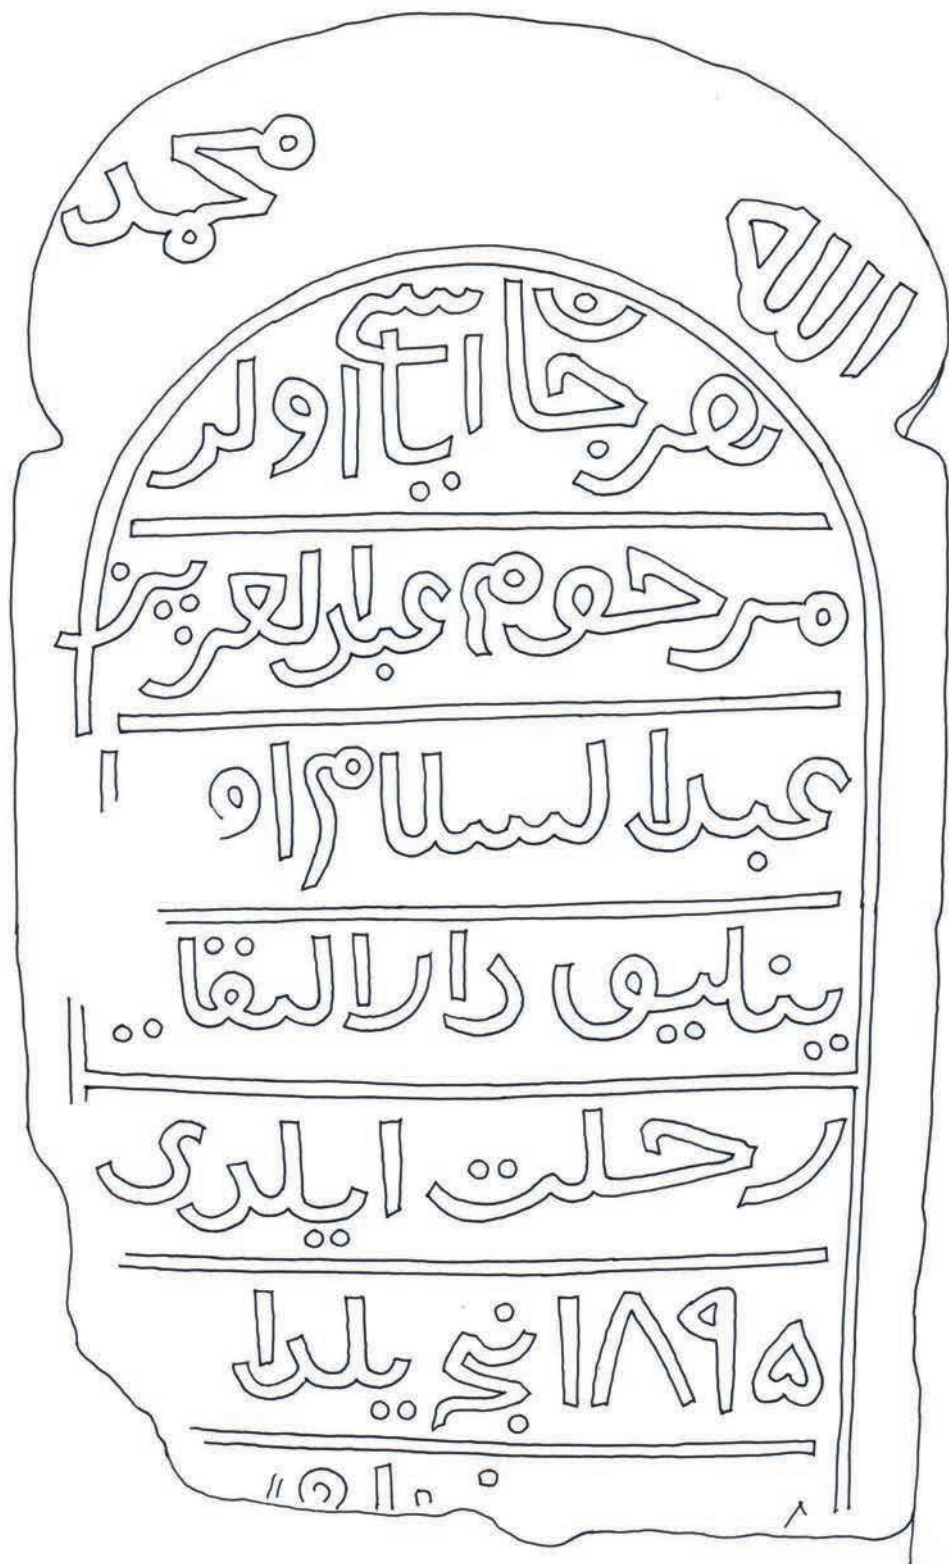 الله محمد
هرجان اياسى اولر
مرحوم عبدالعزيز
عبدالسلام او
ينليق دارالبقا
رحلت ايلدى
۱۸۹۵ نجى يلدا